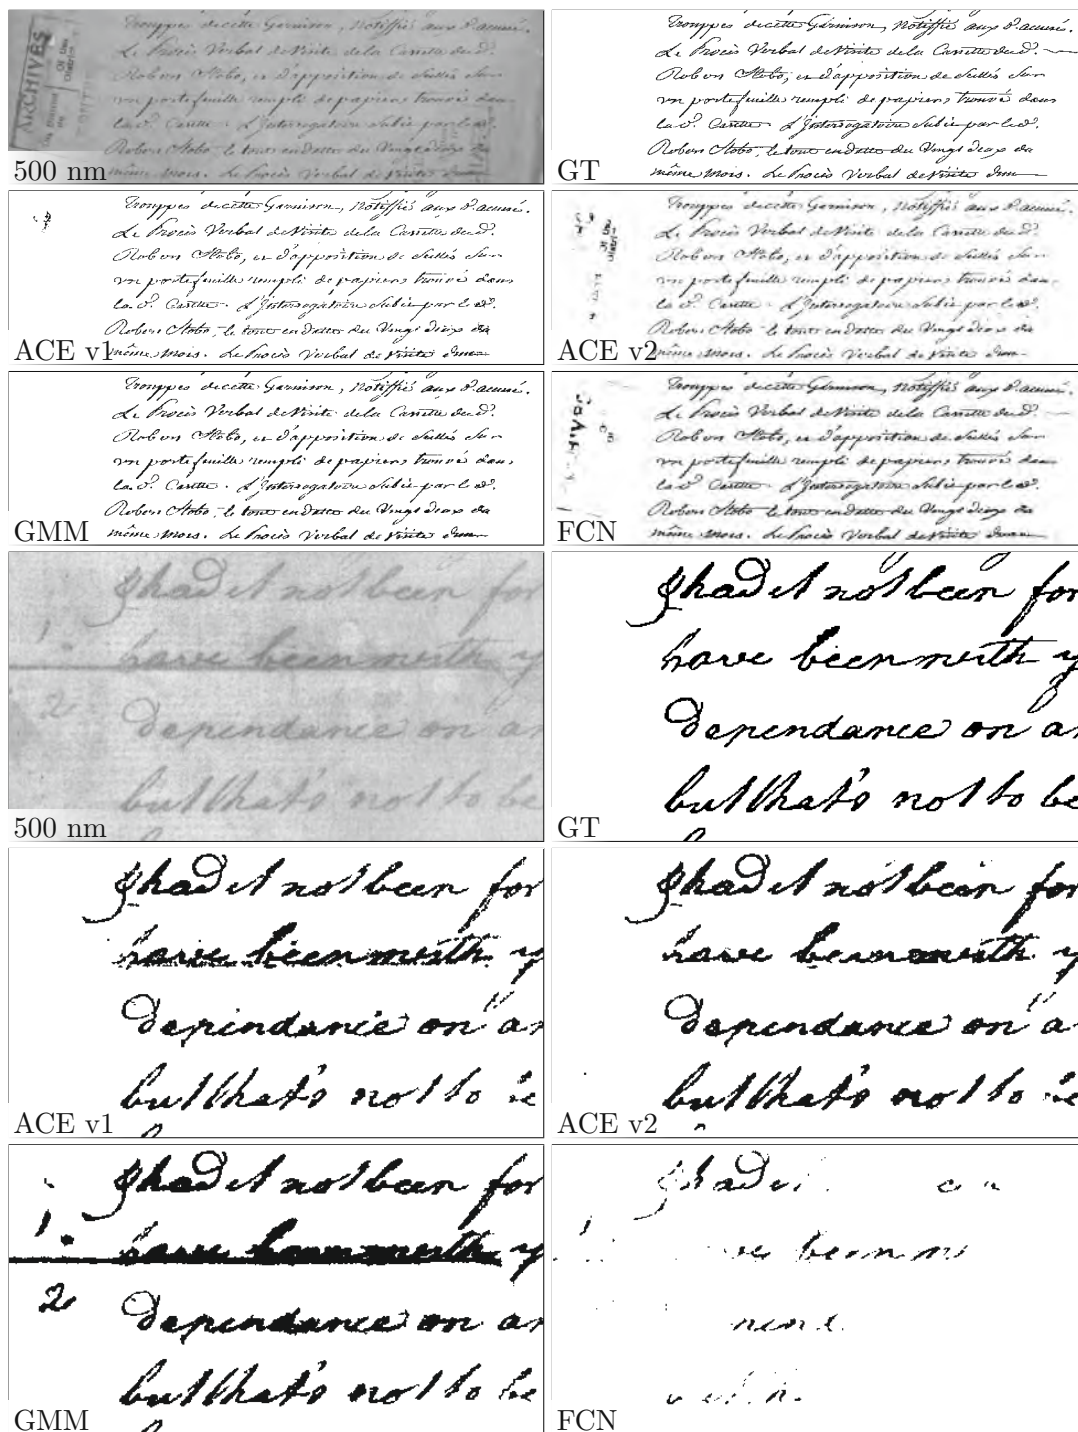 ARCHIVES
Trouppes de cette Garnison, Notiffié aux d. accusé.
Le Procès Verbal de Visite de la Cassette du d.
Robert Stobo, et d'apposition de Scellés Sur
un portefeuille rempli de papiers trouvé dans
la d. Cassette. L'Interrogatoire Subie par le d.
Robert Stobo, le tout en datte du Vingt deux du
même mois. Le Procès Verbal de Visite
500 nm
Trouppes de cette Garnison, Notiffié aux d. accusé.
Le Procès Verbal de Visite de la Cassette du d.
Robert Stobo, et d'apposition de Scellés Sur
un portefeuille rempli de papiers trouvé dans
la d. Cassette. L'Interrogatoire Subie par le d.
Robert Stobo, le tout en datte du Vingt deux du
même mois. Le Procès Verbal de Visite
GT
Trouppes de cette Garnison, Notiffié aux d. accusé.
Le Procès Verbal de Visite de la Cassette du d.
Robert Stobo, et d'apposition de Scellés Sur
un portefeuille rempli de papiers trouvé dans
la d. Cassette. L'Interrogatoire Subie par le d.
Robert Stobo, le tout en datte du Vingt deux du
même mois. Le Procès Verbal de Visite
ACE v1
Trouppes de cette Garnison, Notiffié aux d. accusé.
Le Procès Verbal de Visite de la Cassette du d.
Robert Stobo, et d'apposition de Scellés Sur
un portefeuille rempli de papiers trouvé dans
la d. Cassette. L'Interrogatoire Subie par le d.
Robert Stobo, le tout en datte du Vingt deux du
même mois. Le Procès Verbal de Visite
ACE v2
Trouppes de cette Garnison, Notiffié aux d. accusé.
Le Procès Verbal de Visite de la Cassette du d.
Robert Stobo, et d'apposition de Scellés Sur
un portefeuille rempli de papiers trouvé dans
la d. Cassette. L'Interrogatoire Subie par le d.
Robert Stobo, le tout en datte du Vingt deux du
même mois. Le Procès Verbal de Visite
GMM
Trouppes de cette Garnison, Notiffié aux d. accusé.
Le Procès Verbal de Visite de la Cassette du d.
Robert Stobo, et d'apposition de Scellés Sur
un portefeuille rempli de papiers trouvé dans
la d. Cassette. L'Interrogatoire Subie par le d.
Robert Stobo, le tout en datte du Vingt deux du
même mois. Le Procès Verbal de Visite
FCN
had it not been for
1. have been with y
2 dependance on an
but that's not to be
500 nm
had it not been for
have been with y
dependance on an
but that's not to be
GT
had it not been for
have been with y
dependance on an
but that's not to be
ACE v1
had it not been for
have been with y
dependance on a
but that's not to be
ACE v2
had it not been for
1. have been with y
2 dependance on an
but that's not to be
GMM
had
been
FCN